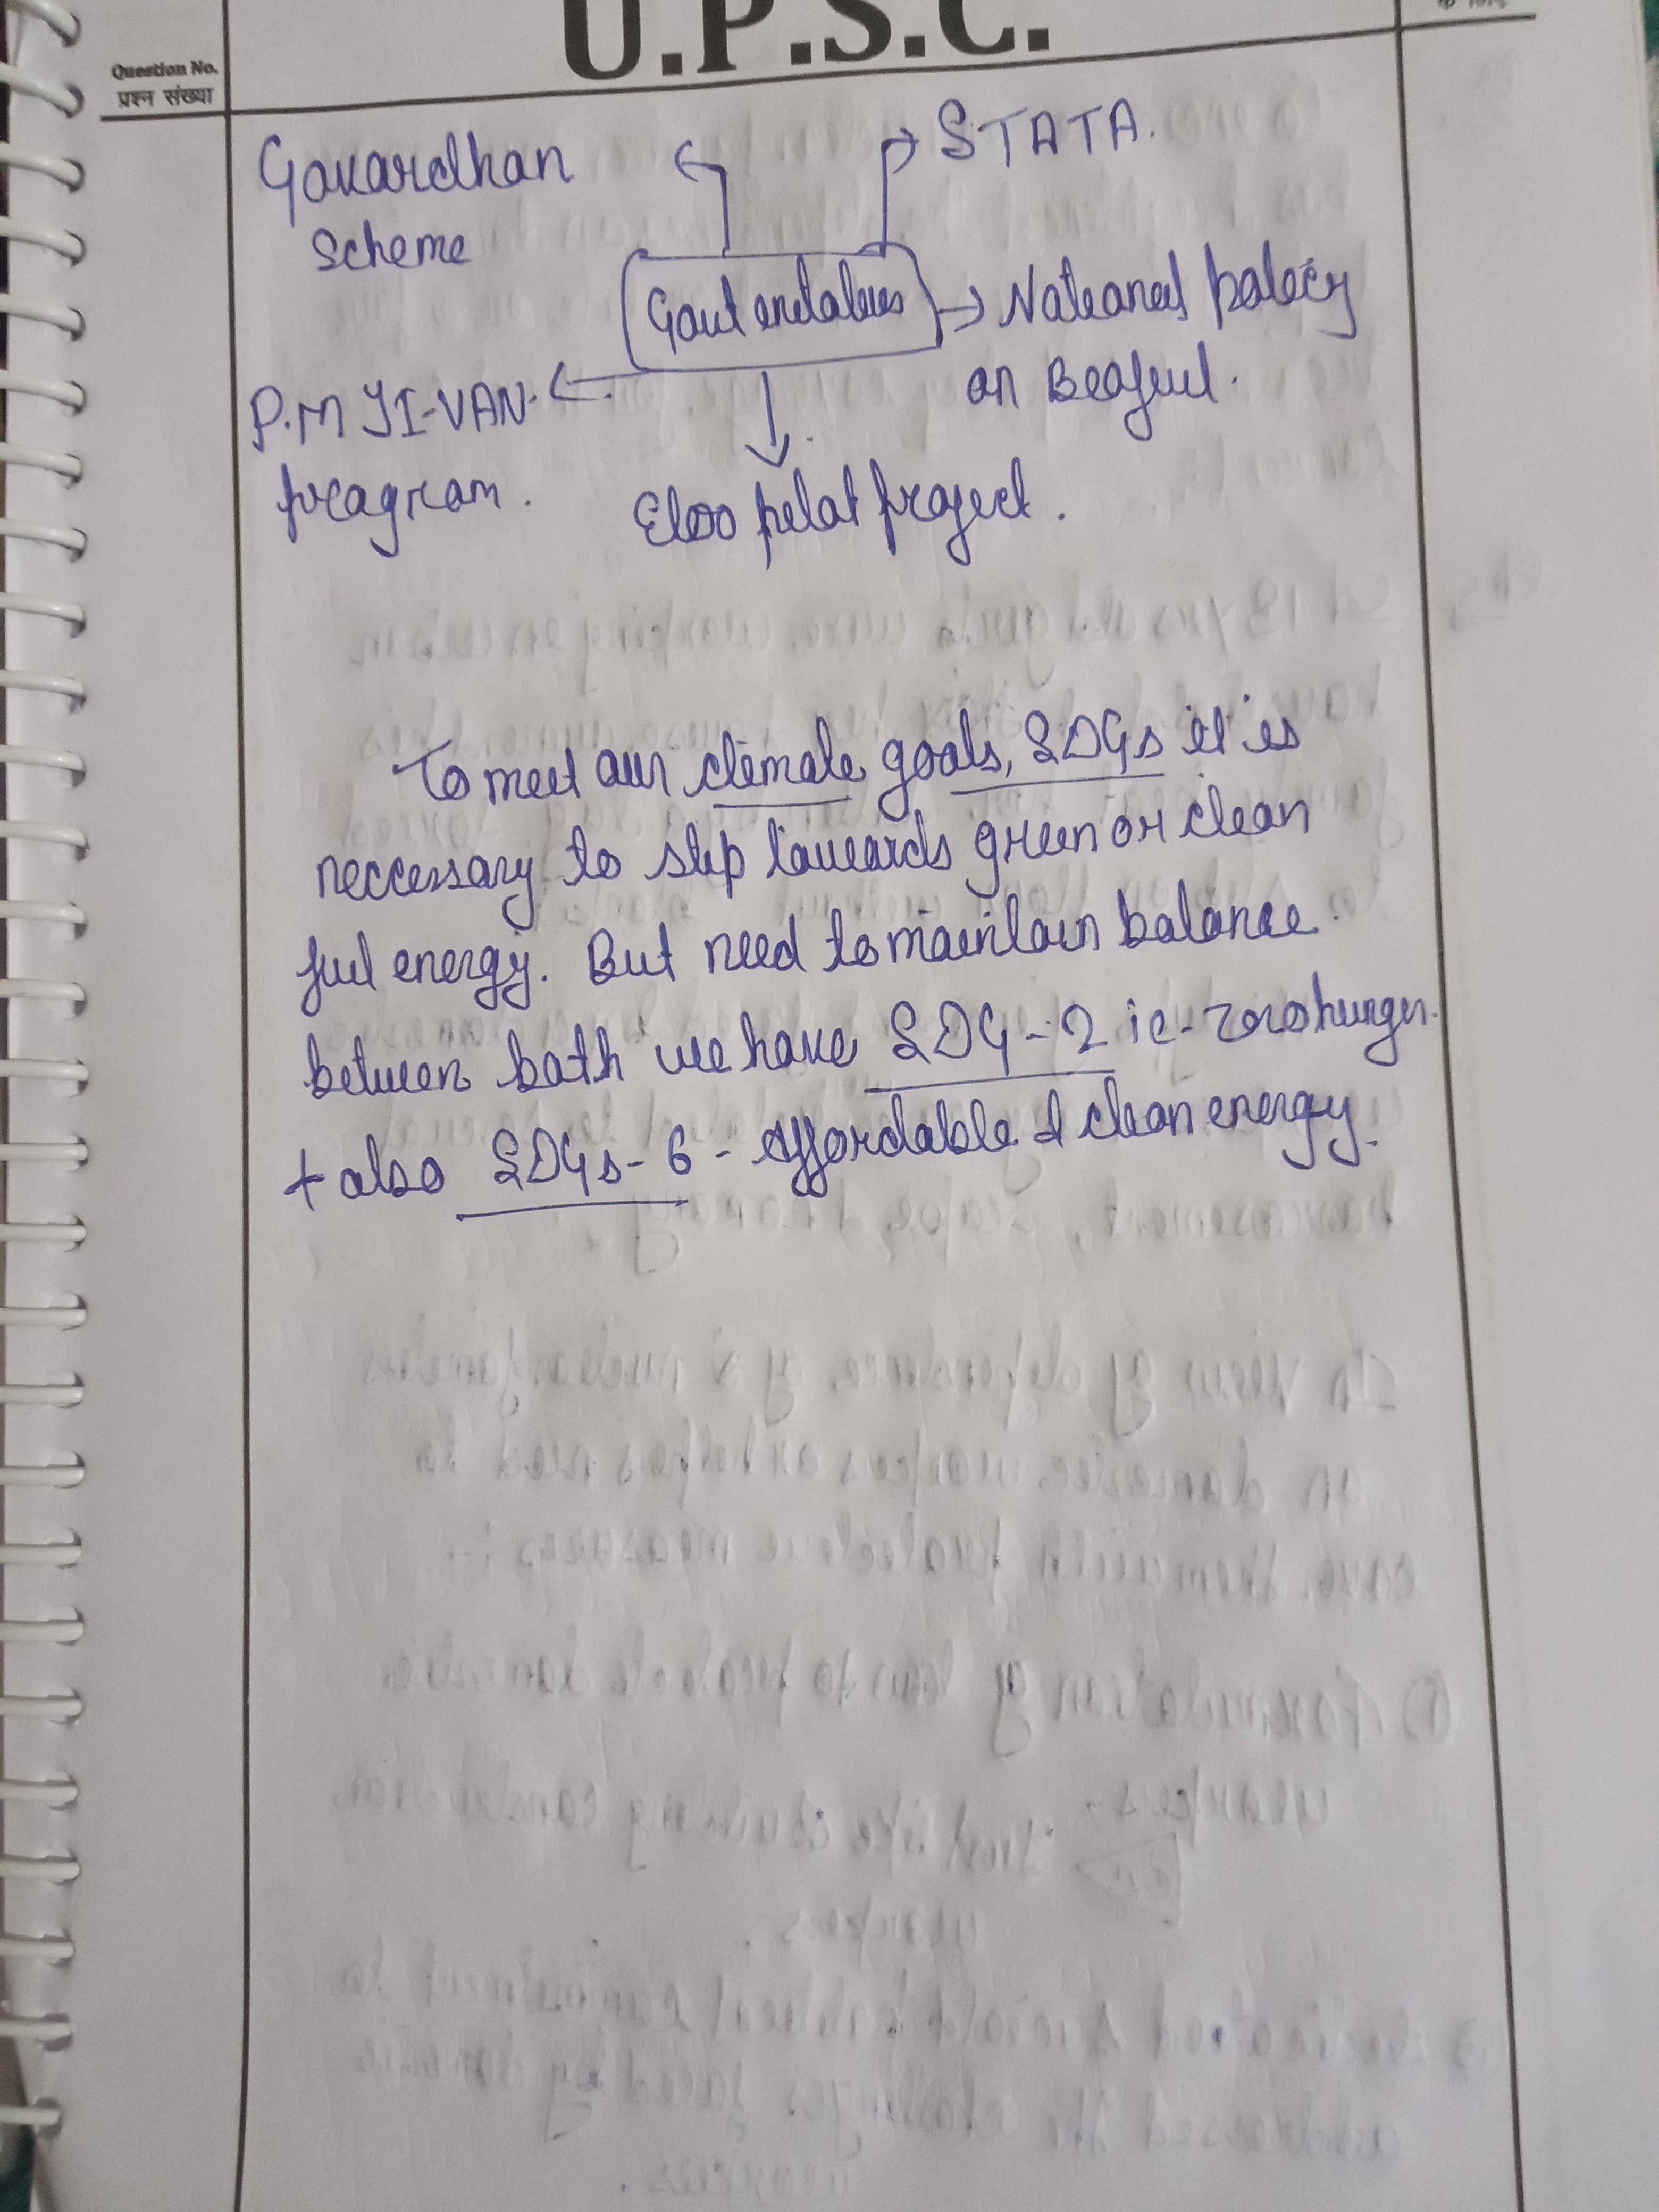 U.P.S.C.
Question No.
प्रश्न संख्या
Govardhan
Scheme
STATA.
Govt enetateves
National policy
on Beofuel.
P.M JI-VAN
program.
E100 pelot project.
To meet our climate goals, SDGs it is
neccessary to step towards green or clean
fuel energy. But need to maintain balance
between both we have SDG-2 ie- zero hunger.
+ also SDGs-6 - affordable & clean energy.